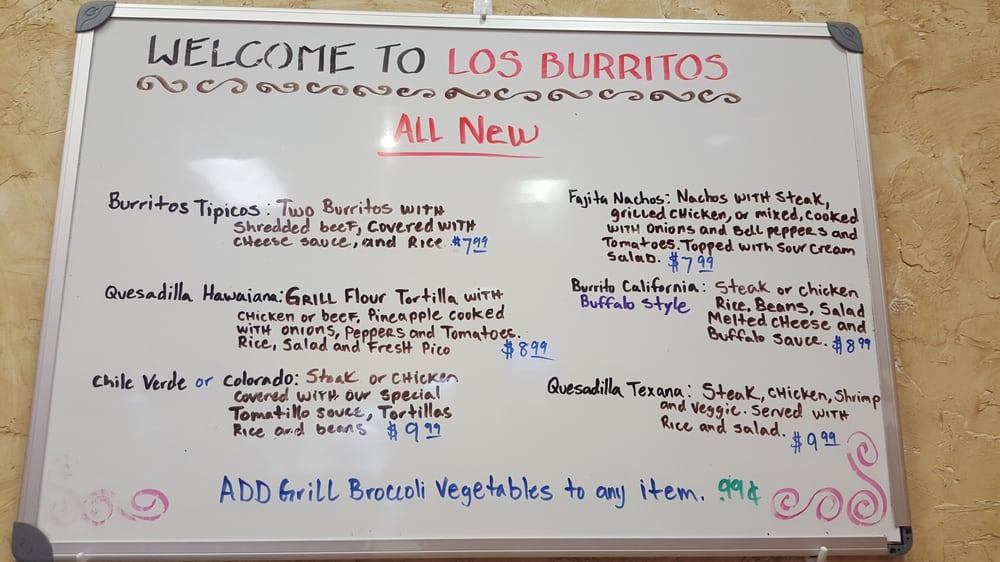 WELCOME TO LOS BURRITOS
ALL New
Burritos Tipicos: Two Burritos WITH
Shredded beef, covered WITH
cheese sauce, and Rice $7.99
Quesadilla Hawaiana: GRILL Flour Tortilla WITH
Chicken or beef, Pineapple cooked
WITH onions, Peppers and Tomatoes.
Rice, Salad and Fresh Pico $8.99
Chile Verde or Colorado: Steak or Chicken
covered WITH our special
Tomatillo souce, Tortillas
Rice and beans $9.99
Fajita Nachos: Nachos WITH Steak,
grilled Chicken, or mixed, cooked
WITH onions and Bell peppers and
Tomatoes. Topped with sour cream
Salad. $7.99
Burrito California: Steak or chicken
Buffalo Style Rice, Beans, Salad
Melted Cheese and
Buffalo sauce. $8.99
Quesadilla Texana: Steak, Chicken, Shrimp
and Veggie. Served WITH
Rice and salad. $9.99
ADD Grill Broccoli Vegetables to any item. .99¢